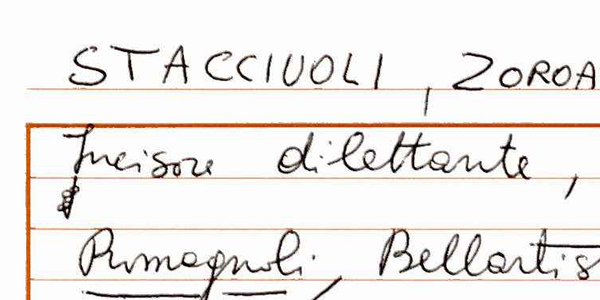 STACCIUOLI, ZOROA
Incisore dilettante,
Romagnoli. Bellartis